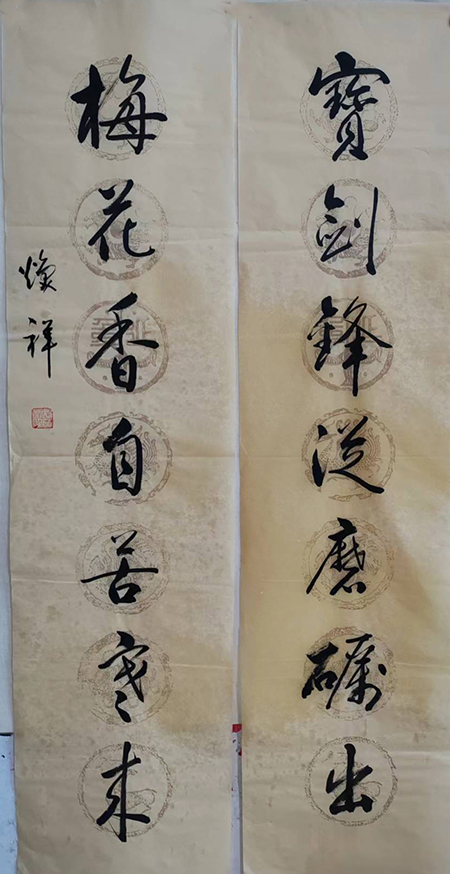 寶劍鋒從磨礪出
梅花香自苦寒來
煥祥